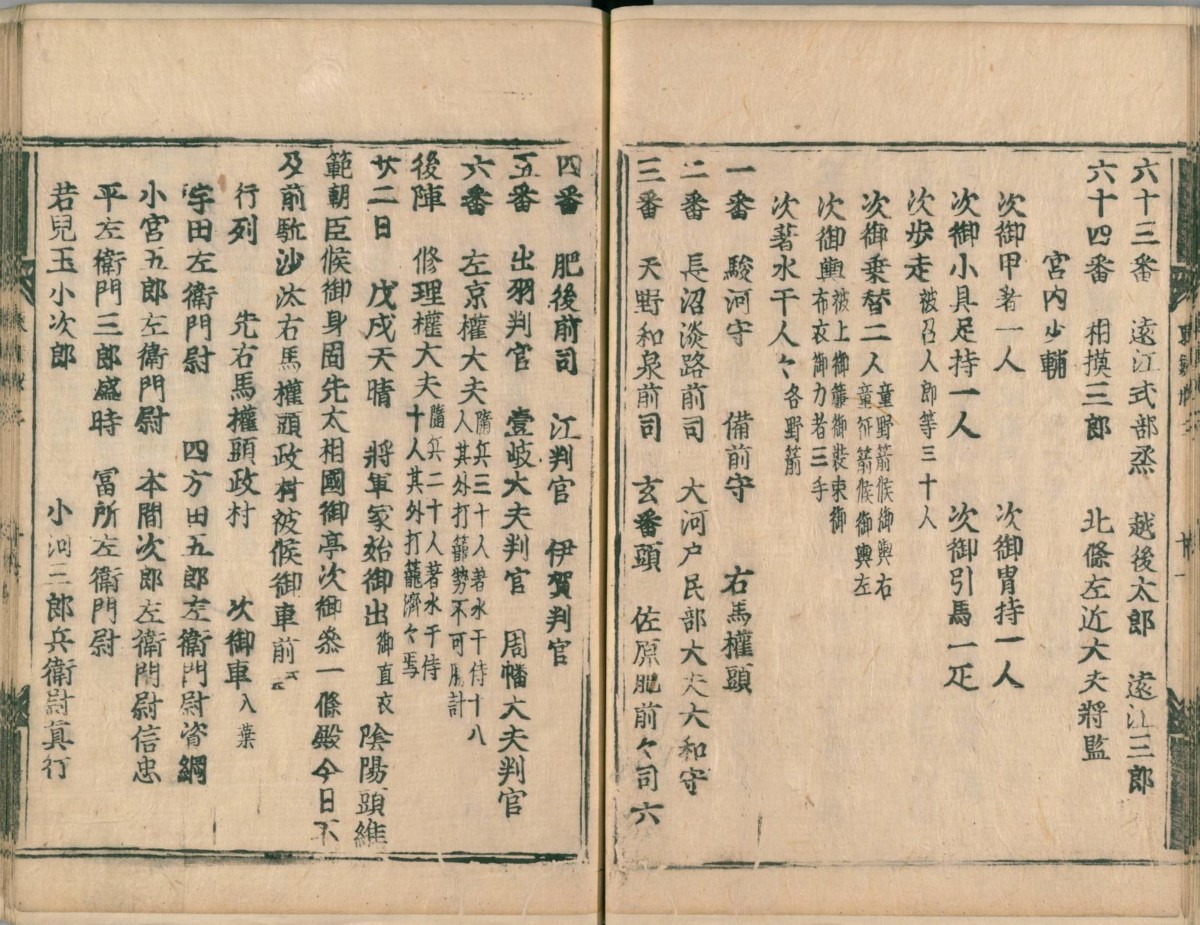 六十三番　遠江式部烝　越後太郎　遠江三郎
六十四番　相摸三郎　北條左近大夫將監
宮内少輔
次御甲著一人　次御冑持一人
次御小具足持一人　次御引馬一疋
次歩走被召人郎等三十人
次御乗替二人童野箭候御輿右童征箭候御輿左
次御輿被上御簾御裝束御布衣御力者三手
次著水干人々各野箭
一番　駿河守　備前守　右馬權頭
二番　長沼淡路前司　大河戸民部大夫大和守
三番　天野和泉前司　玄番頭　佐原肥前々司六
四番　肥後前司　江判官　伊賀判官
五番　出羽判官　壹岐大夫判官　周幡大夫判官
六番　左京權大夫隨兵三十人著水干侍十八人其外打籠勢不可勝計
後陣　修理權大夫隨兵二十人著水干侍十人其外打籠濟々焉
廿二日　戊戌天晴　將軍家始御出御直衣　陰陽頭維
範朝臣候御身固先太相國御亭次御參一條殿今日不
及前駈沙汰右馬權頭政村被候御車前云云
行列　先右馬權頭政村　次御車入葉
宇田左衛門尉　四方田五郎左衛門尉資綱
小宮五郎左衛門尉　本間次郎左衛門尉信忠
平左衛門三郎盛時　冨所左衛門尉
若兒玉小次郎　小河三郎兵衛尉真行